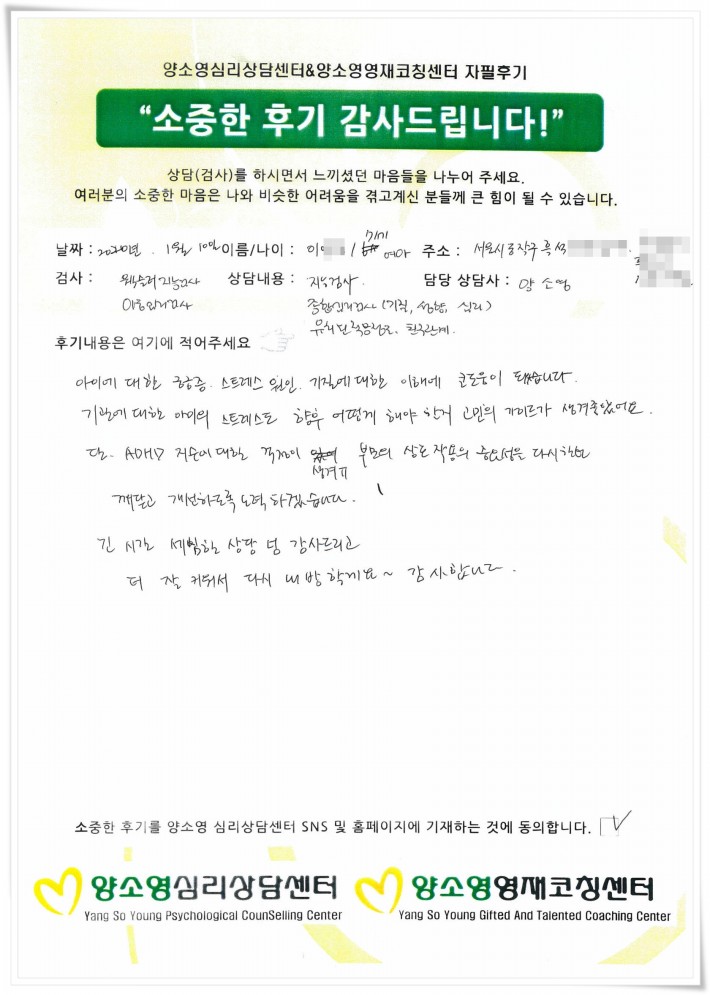 양소영심리상담센터&양소영영재코칭센터 자필후기
“소중한 후기 감사드립니다!”
상담(검사)를 하시면서 느끼셨던 마음들을 나누어 주세요.
여러분의 소중한 마음은 나와 비슷한 어려움을 겪고계신 분들께 큰 힘이 될 수 있습니다.
날짜 : 2020년. 1월 10일 이름/나이 : 이 / 여아 주소 : 서울시 동작구 흑석
검사 : 웩슬러 지능검사 상담내용 : 지능검사. 담당 상담사 : 양 소영
종합심리검사 (기질, 성향, 심리)
친구관계.
후기내용은 여기에 적어주세요
아이에 대한 궁금증. 스트레스 원인. 기질에 대한 이해에 큰도움이 됐습니다.
기관에 대한 아이의 스트레스도 향후 어떻게 해야 할지 고민의 가이드가 생겨좋았어요.
또. ADHD 지수에 대한 걱정이 부모의 상호작용의 중요성을 다시한번
생겨
깨닫고 개선하도록 노력하겠습니다.
긴 시간 세밀한 상담 넘 감사드리고
더 잘 키워서 다시 내방할게요~ 감사합니다.
소중한 후기를 양소영 심리상담센터 SNS 및 홈페이지에 기재하는 것에 동의합니다. ☑
양소영심리상담센터 양소영영재코칭센터
Yang So Young Psychological CounSelling Center Yang So Young Gifted And Talented Coaching Center